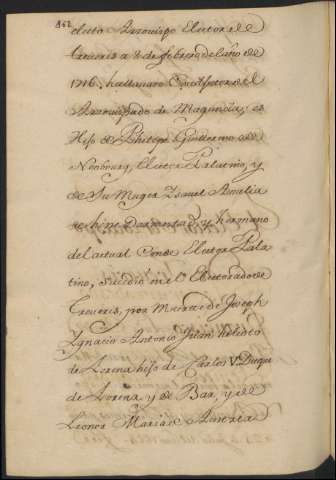 862
electo Arzovispo Elector de
Treveris a 8 de febrero del año de
1716, hallavase Coadjutor del
Arzovispado de Maguncia; es
Hijo de Phelipe Guillermo de
Neobourg, Elector Palatino, y
de Su Muger Ysavel Amelia
de Darmstad, y hermano
del actual Conde Elector Pala
tino, sucedio en el Electorado de
Treveris, por Muerte de Joseph
Ygnacio Antonio Juan
de Lorena hijo de Carlos V. Duque
de Lorena, y de Bar, y de
Leonor Maria de Austria